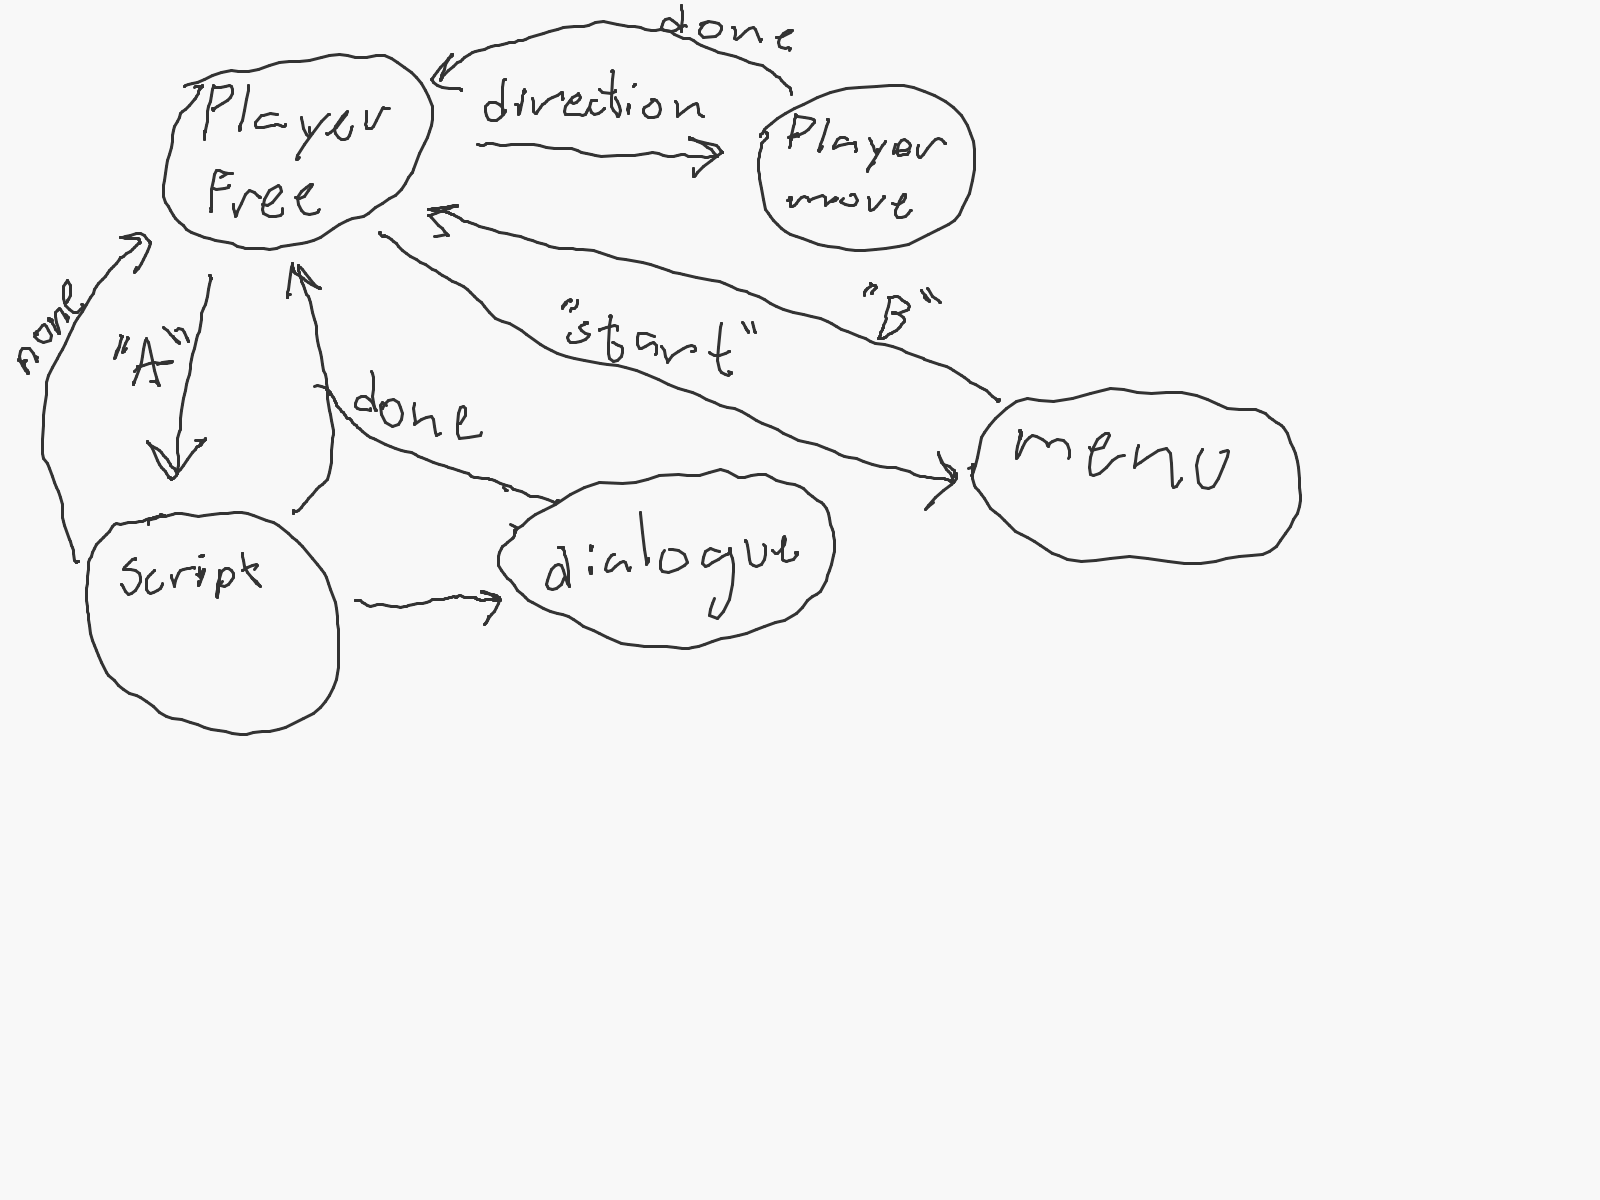 done
Player
Free
direction
Player
move
none
"A"
"start"
"B"
done
menu
script
dialogue